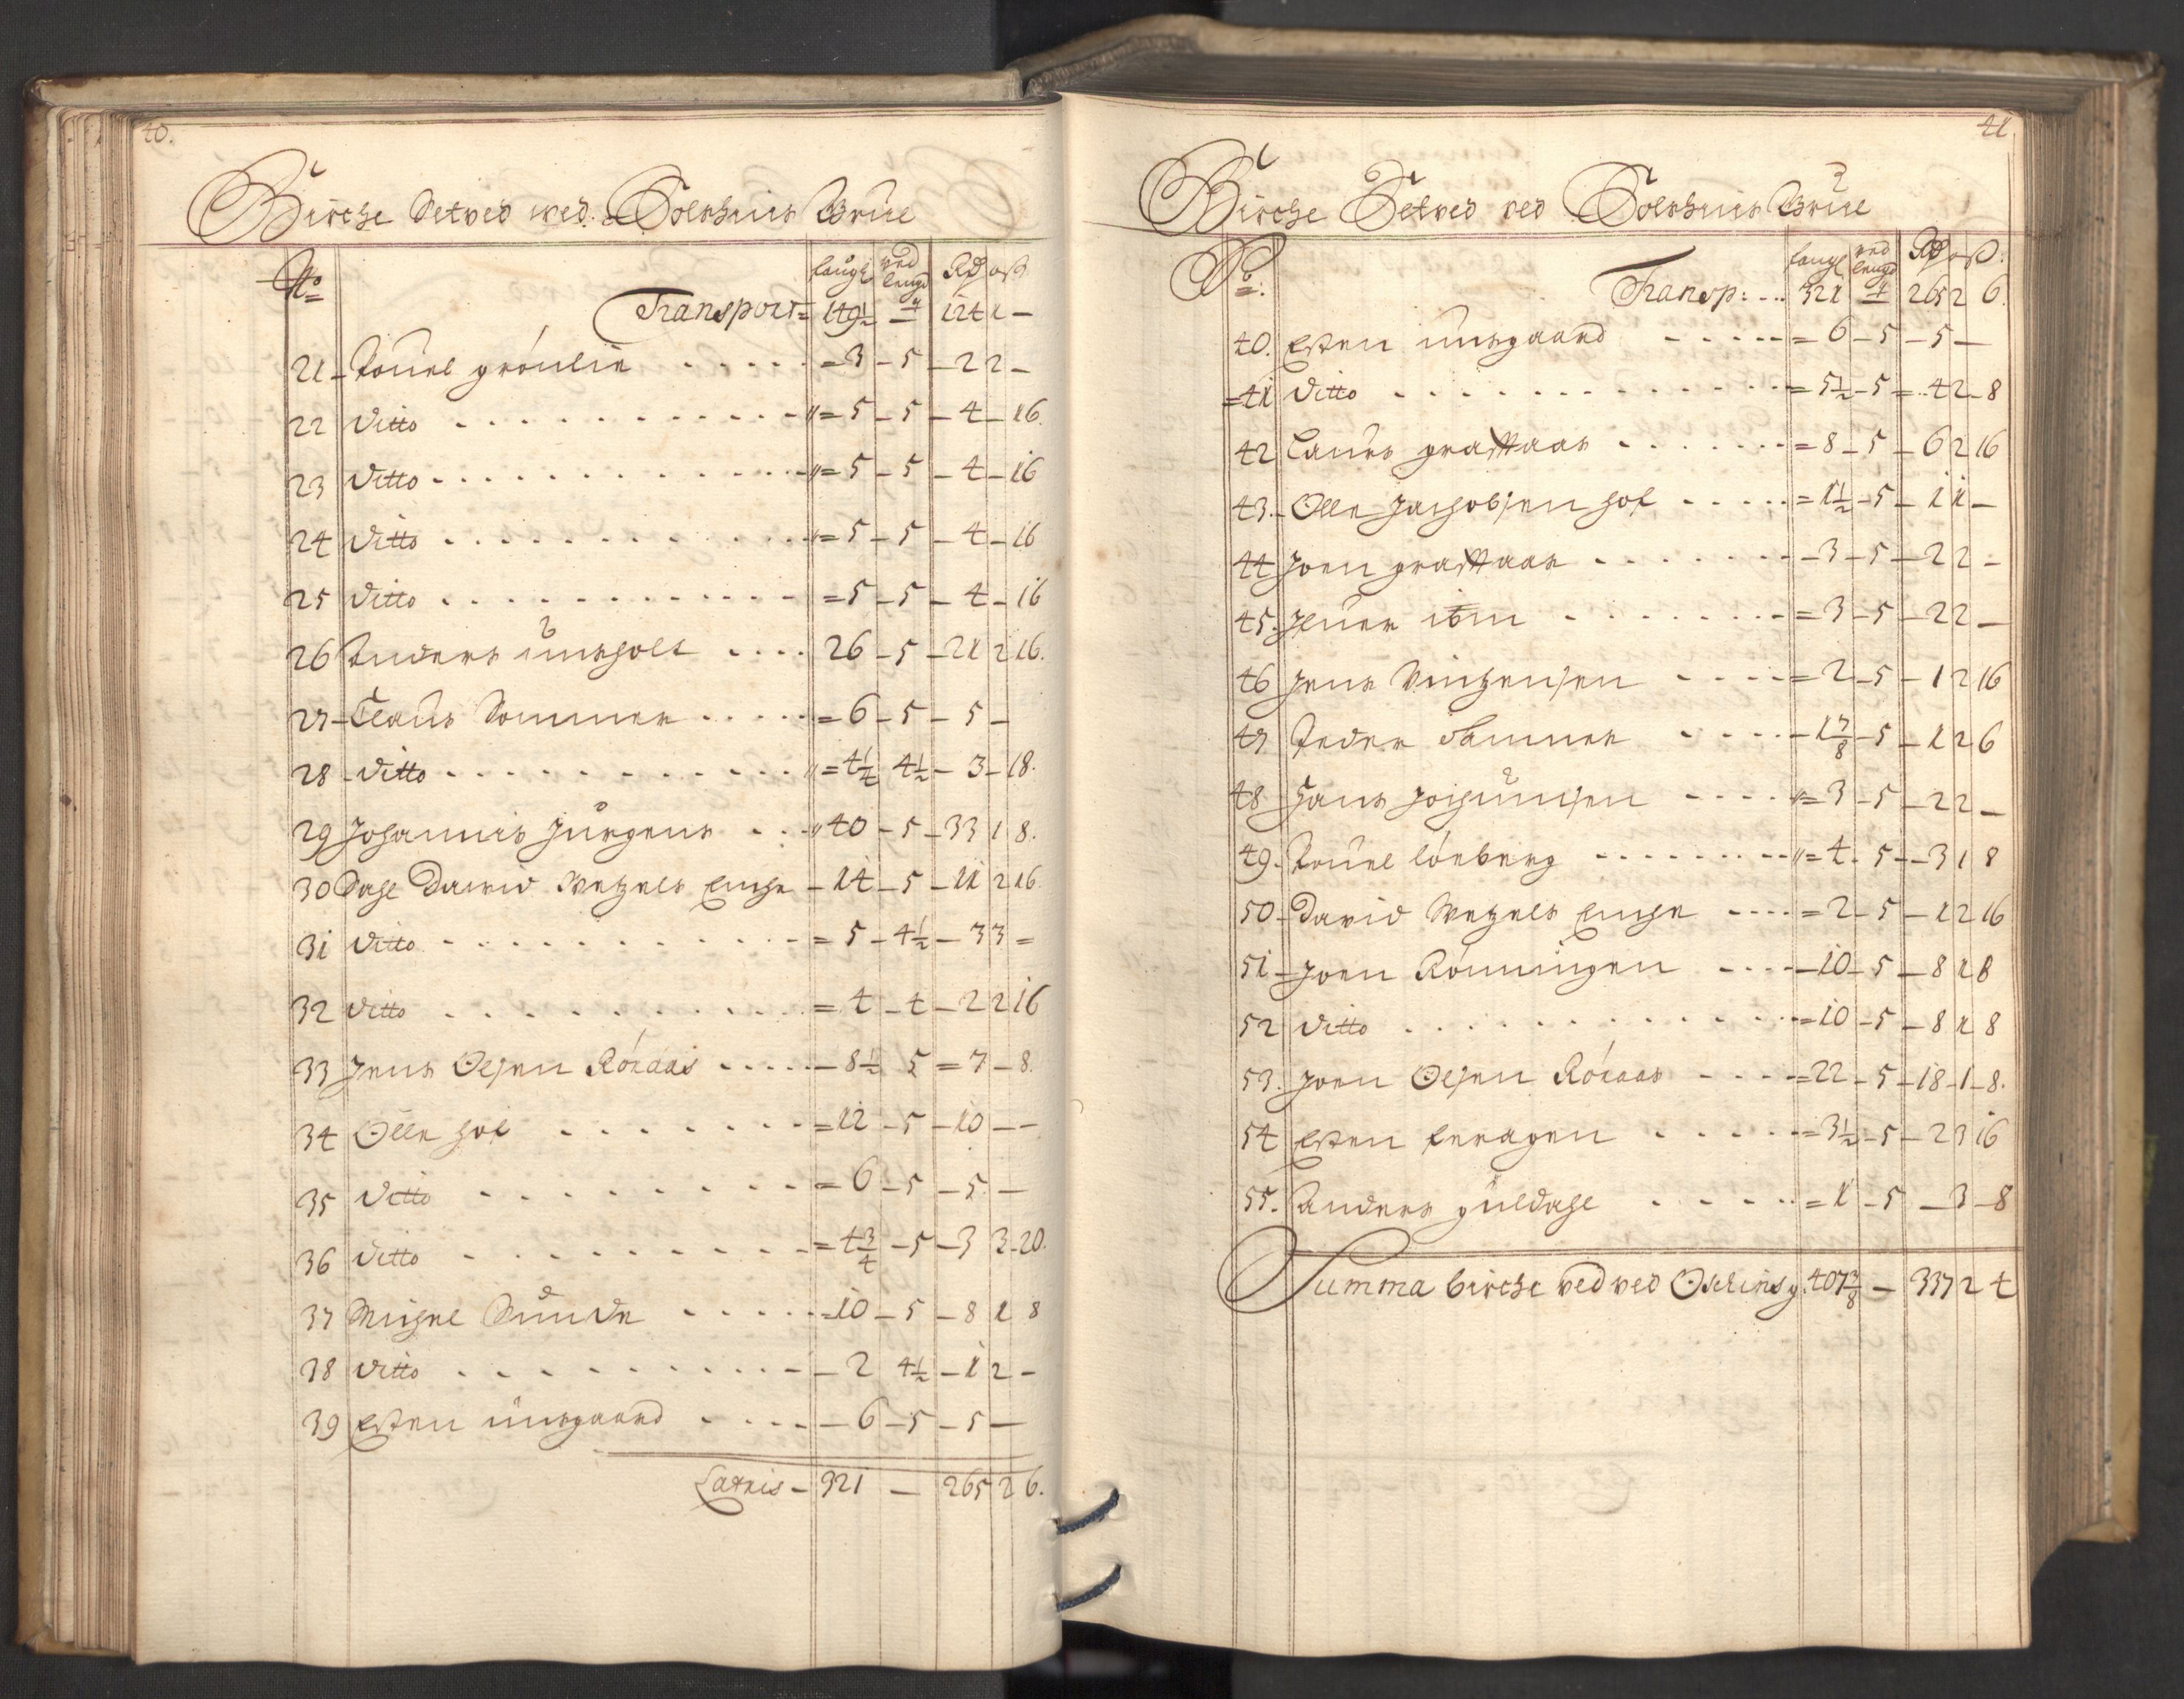 40.
Birche Setved wed. Solskins Grue
No laugt ved lengd Rd ort ß
Transport = 149½ — 124 1 —
21 Povel grönlie = 3 – 5 – 2 2 –
22 Ditto = 5 – 5 – 4 – 16.
23 Ditto = 5 – 5 – 4 – 16
24 Ditto = 5 – 5 – 4 – 16
25 Ditto = 5 – 5 – 4 – 16
26 Anders aasholt 26 – 5 – 21 2 16.
27 Claus Sommer = 6 – 5 – 5 –
28 Ditto = 4¼ 4½ – 3 – 18.
29 Johannis Jürgens 40 – 5 – 33 1 8.
30 Sahl David Wetzels Enche – 14 – 5 – 11 2 16
31 Ditto = 5 – 4½ – 3 3 =
32 Ditto = 4 – 4 – 2 2 16
33 Jens Olsen Röraas – 8½ 5 = 7 – 8.
34 Olle hof = 12 – 5 – 10 – –
35 Ditto = 6 – 5 – 5 –
36 Ditto = 4¾ – 5 – 3 3 – 20.
37 Michel Sunde = 10 – 5 – 8 1 8
38 Ditto – 2 4½ – 1 2 –
39 Esten aasgaard – 6 – 5 – 5 –
Latris – 321 — 265 2 6.
41.
Birche Setved ved Solskins Grue
No. laugt ved lengd Rd ort ß.
Transp: 321 265 2 6.
40. Esten aasgaard = 6 – 5 – 5 –
41 Ditto = 5½ – 5 = 4 2 – 8
42 Laurs graffaas = 8 – 5 – 6 2 16
43. Olle Jachobsen hof = 1½ – 5 – 1 1 –
44 Joen graffaas – 3 – 5 – 2 2 –
45. Jver ibm = 3 – 5 – 2 2 –
46 Jens Vintzensen = 2 – 5 – 1 2 16
47 Peder Sommer – 1⅞ – 5 – 1 2 6
48 Hans Jochumsen = 3 – 5 – 2 2 –
49. Povel lönberg = 4 – 5 – 3 1 8
50 David Wetzels Enche = 2 – 5 – 1 2 16
51 Joen Rönningen – 10 – 5 – 8 1 8
52 Ditto = 10 – 5 – 8 1 8
53. Joen Olsen Röraas = 22 – 5 – 18 – 1 – 8.
54 Esten feragen = 3½ – 5 – 2 3 16
55. Anders guldahl = 1 – 5 – 3 – 8
Summa birche ved ved 407⅜ – 337 2 4